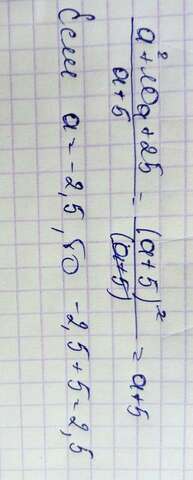 a²+10a+25 / a+5 = (a+5)² / (a+5) = a+5
Если a=-2,5, то -2,5+5=2,5